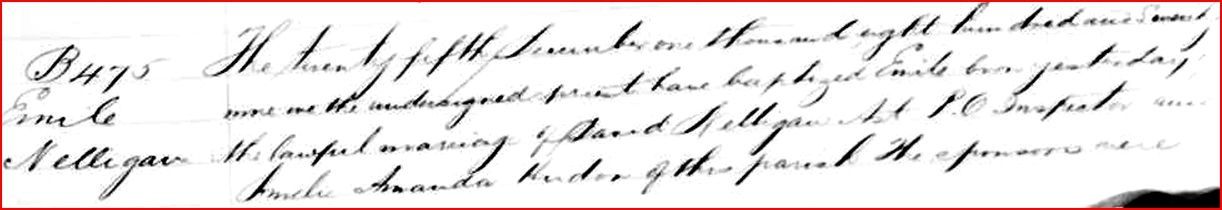 B475
Emile
Nelligan
The twenty fifth December one thousand eight hundred and Seventy
nine we the undersigned priest have baptized Emile born yesterday
the lawful marriage of David Nelligan Ast P.O Inspector and
Amelie Amanda Hudon of this parish The sponsors were